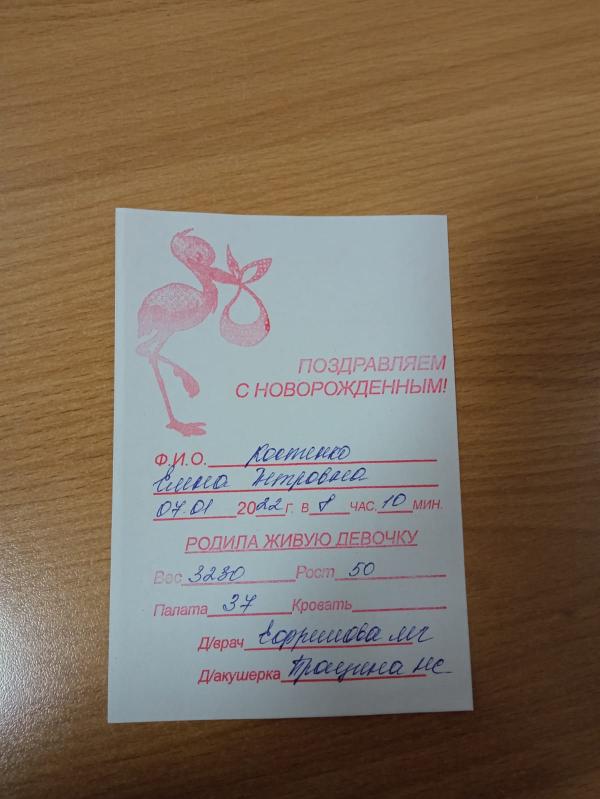 ПОЗДРАВЛЯЕМ
С НОВОРОЖДЕННЫМ!
Ф.И.О. Костенко
Елена Петровна
07.01 2022 г. в 8 ЧАС. 10 МИН.
РОДИЛА ЖИВУЮ ДЕВОЧКУ
Вес 3230 Рост 50
Палата 37 Кровать
Д/врач мг
Д/акушерка нс